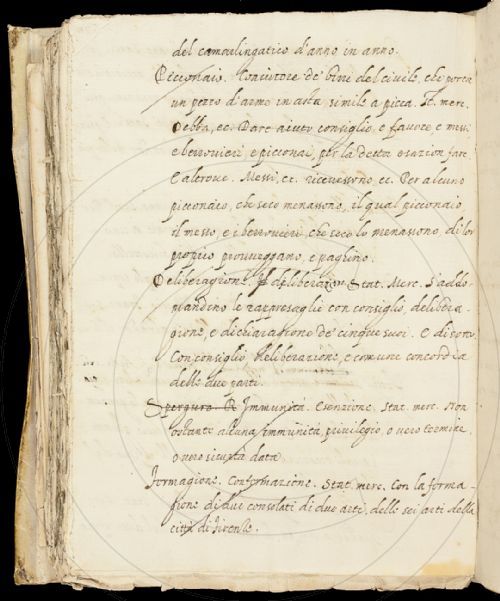 del camarlingatico d'anno in anno.
Picconaio. Toccatore de' birri del civile, che porta
un pezzo d'armo in asta, simile a picca. St. merc.
Debba, ec. Dare aiuto consiglio, e favore, e messi
e berrovieri, e picconai, per la detta esazion fare.
E altrove. Messi, ec. ricevessono, ec. Per alcuno
picconaio, che seco menassono, il qual picconaio,
il messo, e i berrovieri, che seco lo menassono, di lor
proprio provveggano, e paghino.
Deliberagione. deliberazion Stat. Merc. S'addo
mandino le rappresaglie con consiglio, delibera-
gione, e dichiaragione de' cinque suoi. E di sotto
Con consiglio, deliberazione, e comune concordia
delle due parti.
Immunità. Esenzione. Stat. merc. Non
ostante alcuna immunità, privilegio, o vero termine
o vero sicurtà data.
Formagione. Conformazione. Stat. merc. Con la forma-
gione di due consolati di due arti, delle sei arti della
città di Firenze.